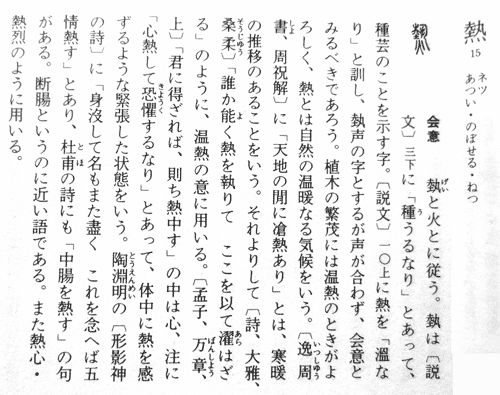 熱 15 ネツ あつい・のぼせる・ねつ
会意 埶と火とに従う。埶は〔説
文〕三下に「種うるなり」とあって、
種芸のことを示す字。〔説文〕一〇上に熱を「溫な
り」と訓し、埶声の字とするが声が合わず、会意と
みるべきであろう。植木の繁茂には温熱のときがよ
ろしく、熱とは自然の温暖なる気候をいう。〔逸周
書、周祝解〕に「天地の閒に凔熱あり」とは、寒暖
の推移のあることをいう。それよりして〔詩、大雅、
桑柔〕「誰か能く熱を執りて ここを以て濯はざ
る」のように、温熱の意に用いる。〔孟子、万章、
上〕「君に得ざれば、則ち熱中す」の中は心、注に
「心熱して恐懼するなり」とあって、体中に熱を感
ずるような緊張した状態をいう。陶淵明の〔形影神
の詩〕に「身沒して名もまた盡く これを念へば五
情熱す」とあり、杜甫の詩にも「中腸を熱す」の句
がある。断腸というのに近い語である。また熱心・
熱烈のように用いる。